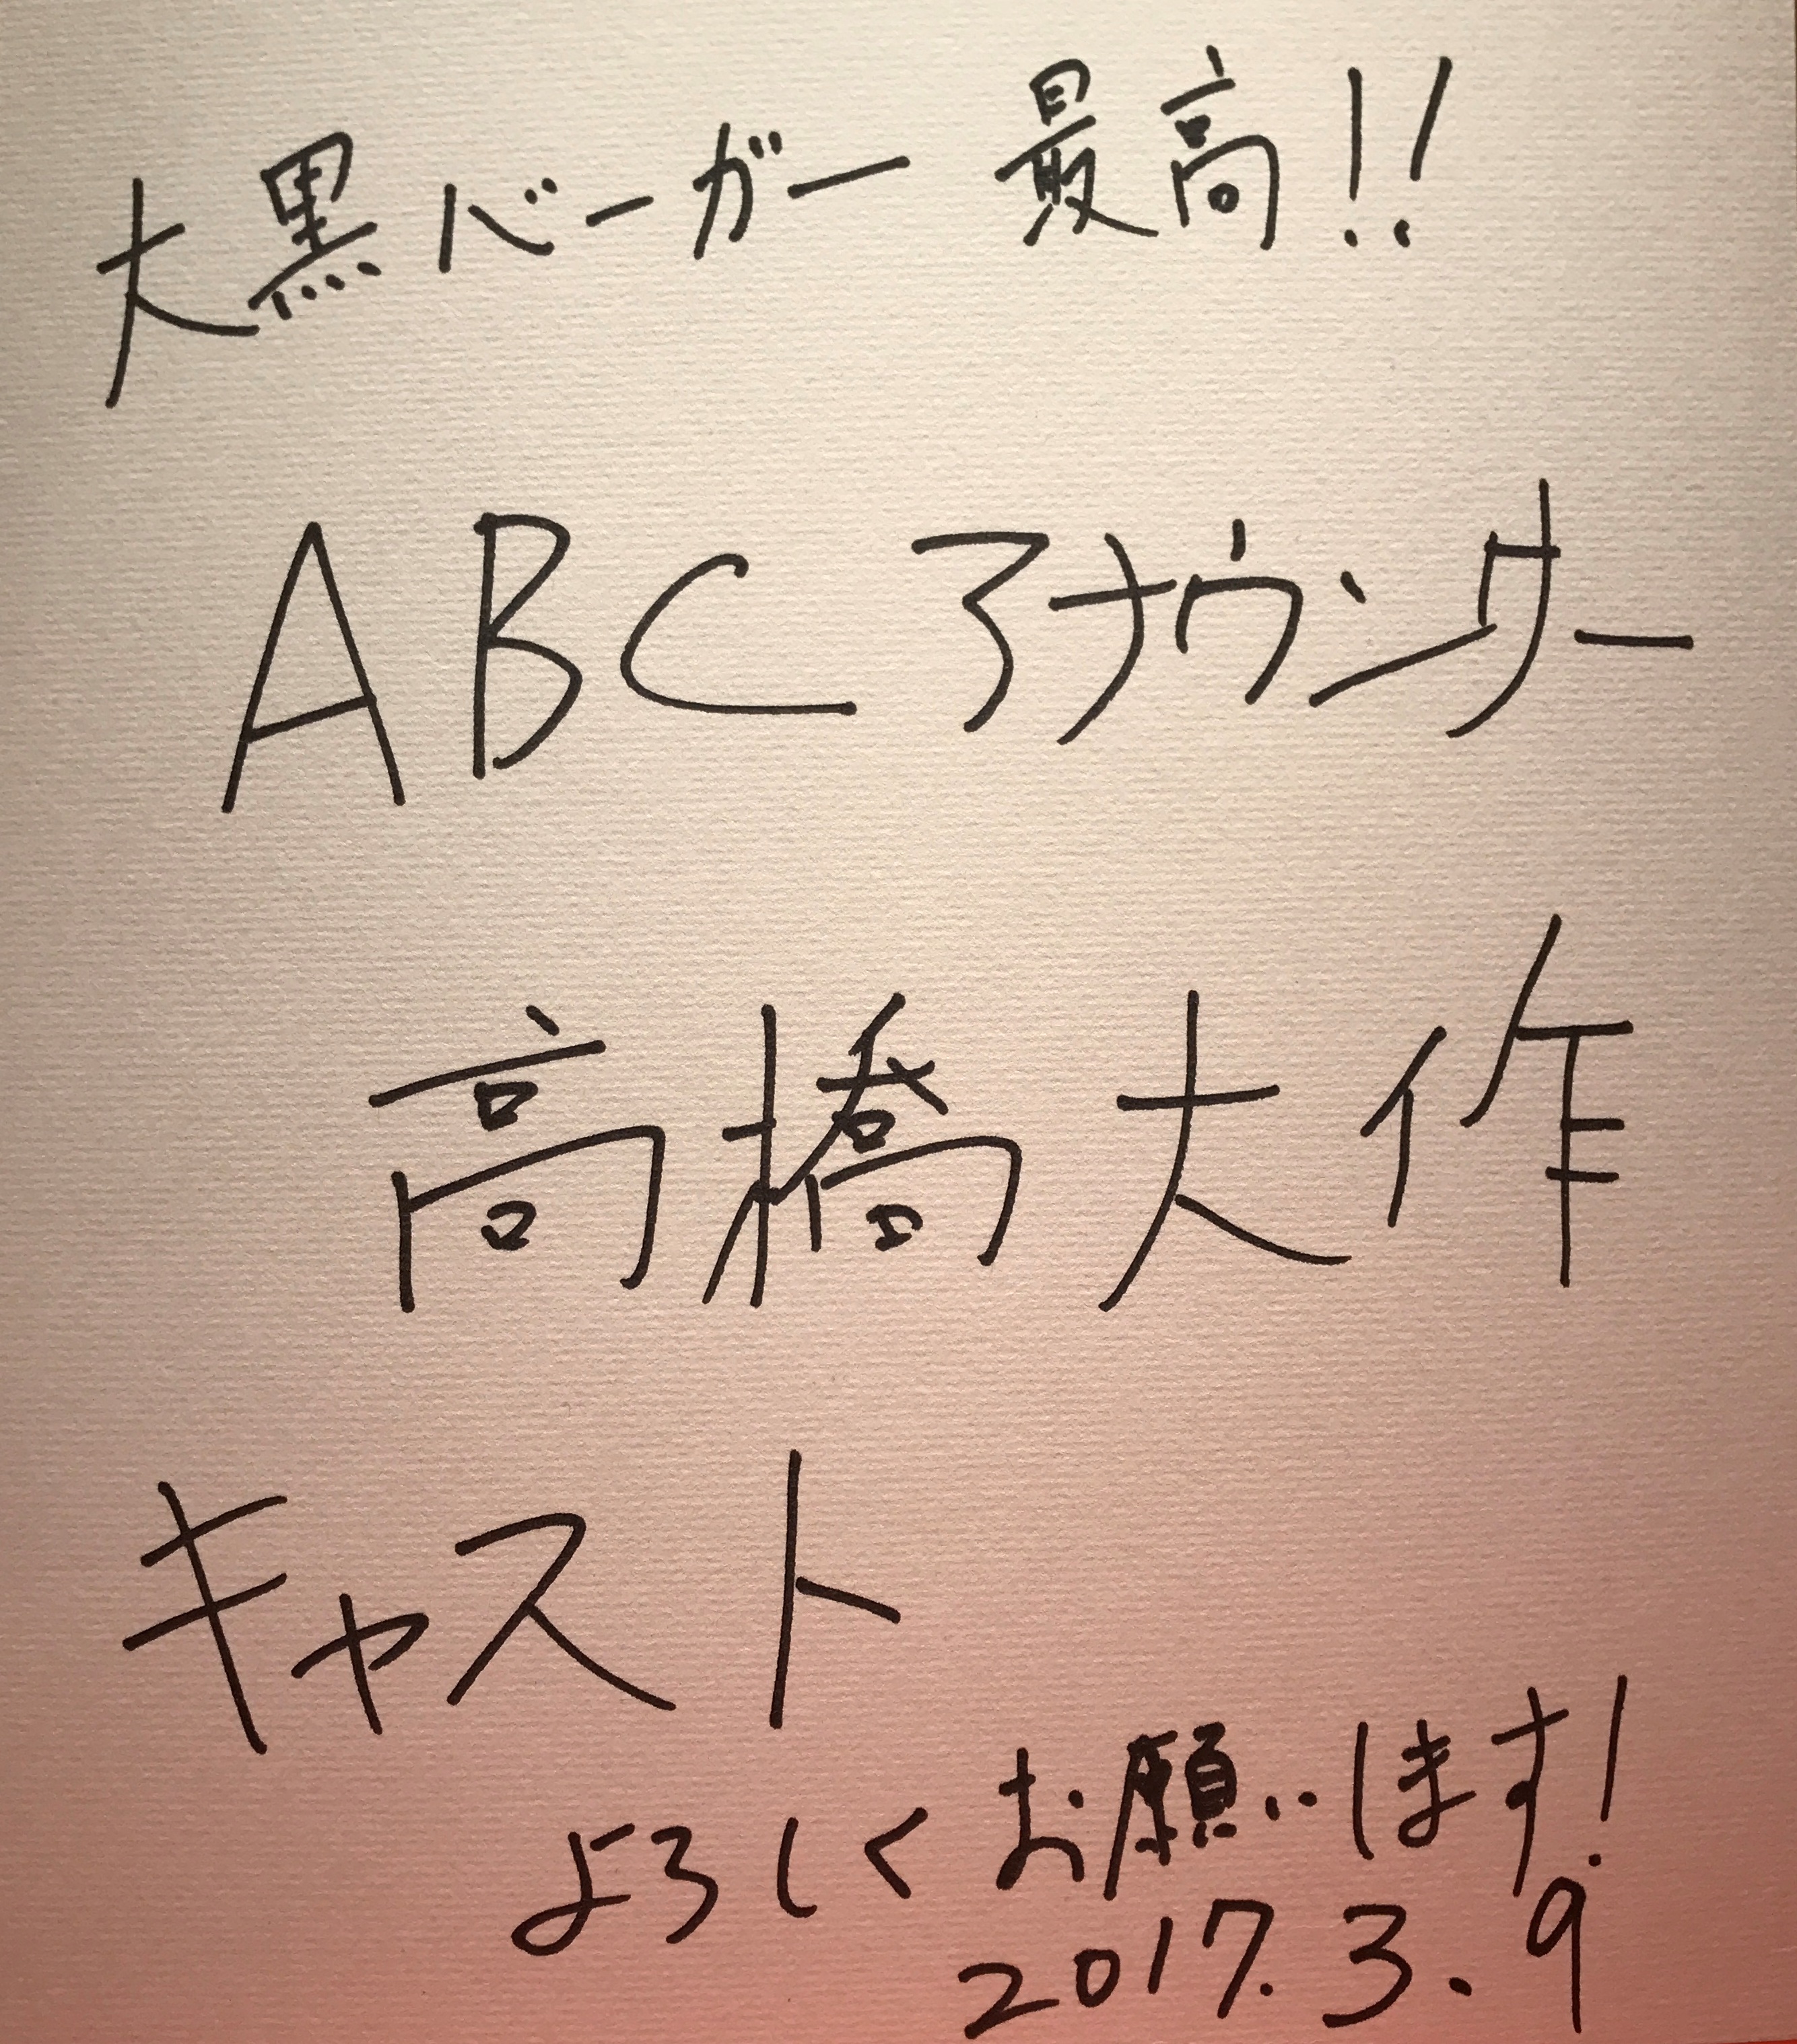 大黒バーガー 最高!!
ABCアナウンサー
高橋大作
キャスト
よろしくお願いします!
2017.3.9